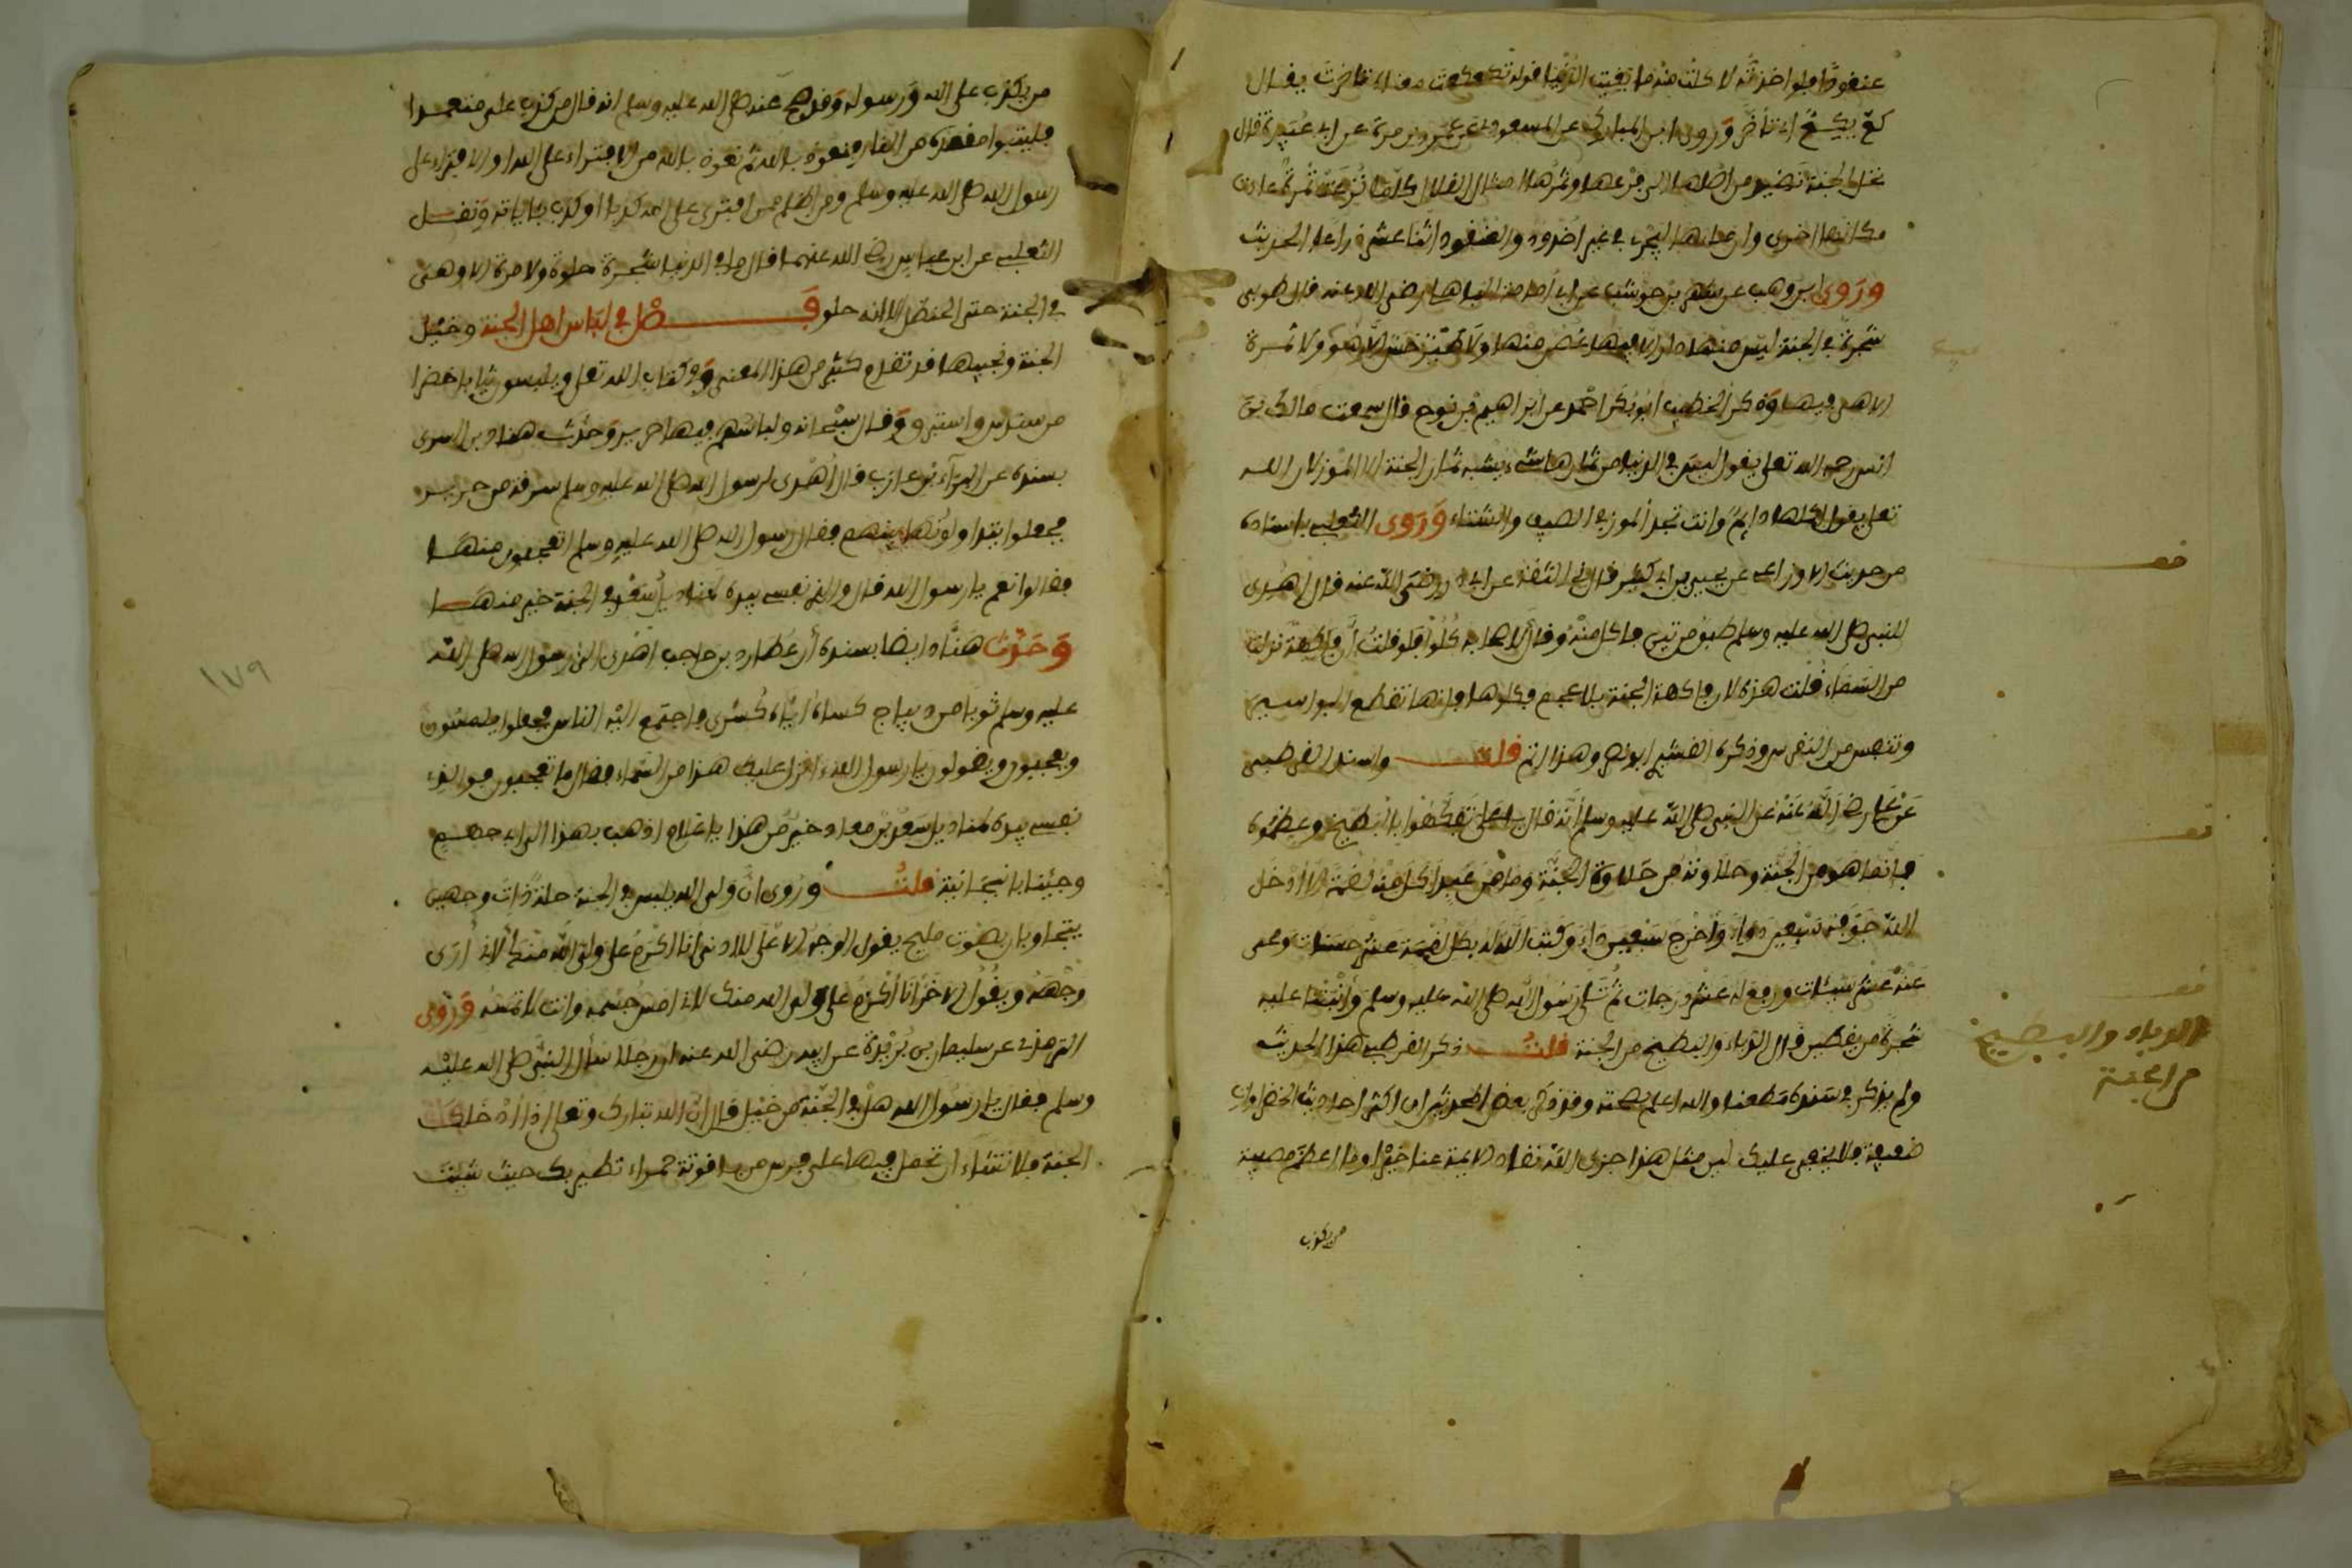 عنقودا ولو اخذته لاكلت منه ما بقيت الدنيا قوله تكعكعت معناه تاخرت يقال
كع يكع اذا تاخر وروى ابن المبارك عن المسعودي عن عمرو بن مرة عن ابي عبيدة قال
نخل الجنة نضيد من اصلها الى فرعها وثمرها امثال القلال كلما نزعت ثمرة عادت
مكانها اخرى وان ماءها ليجري في غير اخدود والعنقود اثنا عشر ذراعا الحديث
وروى ابن وهب عن شهر بن حوشب عن ابي امامة الباهلي رضي الله عنه قال طوبى
شجرة في الجنة ليس منها دار الا فيها غصن منها ولا طير حسن الا هو ولا ثمرة
الا هي فيها وذكر الخطيب ابو بكر احمد عن ابراهيم بن نوح قال سمعت مالك بن
انس رحمه الله تعلى يقول ليس في الدنيا من ثمارها شيء يشبه ثمار الجنة الا الموز لان الله
تعلى يقول اكلها دايم وانت تجد الموز في الصيف والشتاء وروى الثعلبي باسناده
من حديث الاوزاعي عن يحيى بن ابي كثير قال ني الثقة عن ابي ذر رضي الله عنه قال اهدي
للنبي صلى الله عليه وسلم طبق من تين فاكل منه وقال لاصحابه كلوا فلو قلت ان فاكهة نزلت
من السماء قلت هذه لان فاكهة الجنة بلا عجم فكلوها فانها تقطع البواسير
وتنفع من النقرس وذكره القشيري ابو نصر وهذا اتم قلت واسند القرطبي
عن علي رضي الله عنه عن النبي صلى الله عليه وسلم انه قال يا علي تفكهوا بالبطيخ وعظموه
فانما هو من الجنة وحلاوته من حلاوة الجنة وما من عبد اكل منه لقمة الا ادخل
الله جوفه سبعين دواء واخرج سبعين داء وكتب الله له بكل لقمة عشر حسنات ومحى
عنه عشر سيئات ورفع له عشر درجات ثم تلى رسول الله صلى الله عليه وسلم وانبتنا عليه
شجرة من يقطين قال الدباء والبطيخ من الجنة قلت ذكر القرطبي هذا الحديث
ولم يذكر في سنده مطعنا والله اعلم بصحته وقد ذكر بعض المحدثين ان اكثر احاديث الخضراوات
ضعيفة فلا يخفى عليك لين مثل هذا جزى الله نقاد الايمة عنا خيرا وما اعظم مصيبة
من يكذب
فف
قف
قف
الدباء والبطيخ
من الجنة
من يكذب على الله ورسوله وقد صح عنه صلى الله عليه وسلم انه قال من كذب علي متعمدا
فليتبوا مقعده من النار فنعوذ بالله ثم نعوذ بالله من الافتراء على الله او الافتراء على
رسول الله صلى الله عليه وسلم ومن اظلم ممن افترى على الله كذبا او كذب باياته ونقل
الثعلبي عن ابن عباس رضي الله عنهما قال ما في الدنيا شجرة حلوة ولا مرة الا وهي
في الجنة حتى الحنظل الا انه حلو فصل في لباس اهل الجنة وخيل
الجنة ونجيبها قد تقدم كثير من هذا المعنى وفي كتاب الله تعلى ويلبسون ثيابا خضرا
من سندس واستبرق وقال سبحانه ولباسهم فيها حرير وحدث هناد بن السري
بسنده عن البراء بن عازب قال اهدي لرسول الله صلى الله عليه وسلم سرقة من حرير
فجعلوا يتداولونها بينهم فقال رسول الله صلى الله عليه وسلم اتعجبون منها
فقالوا نعم يا رسول الله قال والذي نفسي بيده لمناديل سعد في الجنة خير منها
وحدث هناد ايضا بسنده ان عطارد بن حاجب اهدى الى رسول الله صلى الله
عليه وسلم ثوبا من ديباج كساه اياه كسرى فاجتمع اليه الناس فجعلوا يلمسونه
ويعجبون ويقولون يا رسول الله انزل عليك هذا من السماء فقال ما تعجبون فوالذي
نفسي بيده لمناديل سعد بن معاذ خير من هذا يا غلام اذهب بهذا الى ابي جهم
وجئنا بانبجانيته قلت وروي ان ولي الله يلبس في الجنة حلة ذات وجهين
يتجاوبان بصوت مليح يقول الوجه الاعلى للادنى انا اكرم على ولي الله منك لاني ارى
وجهه ويقول الاخر انا اكرم على ولي الله منك لاني امس جسمه وانت لا تمسه وروى
الترمذي عن سليمان بن بريدة عن ابيه رضي الله عنه ان رجلا سال النبي صلى الله عليه
وسلم فقال يا رسول الله هل في الجنة من خيل قال ان الله تبارك وتعلى اذا ادخلك
الجنة فلا تشاء ان تحمل فيها على فرس من ياقوتة حمراء تطير بك حيث شيت
١٧٩